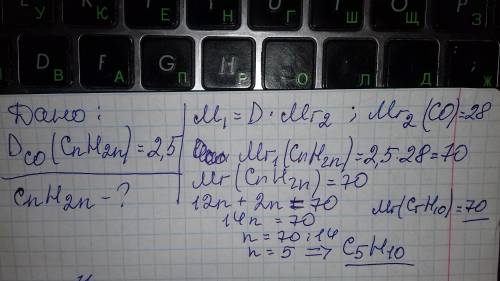 У К Е Н Г Ш Щ З
D F G H
В А П Р О Л Д Ж
Дано:
D_CO(CnH2n)=2,5
CnH2n-?
M₁=D·Mr₂ ; Mr₂(CO)=28
Mr₁(CnH2n)=2,5·28=70
Mr(CnH2n)=70
12n+2n=70
14n=70
n=70:14
n=5 => C5H10
Mr(C5H10)=70